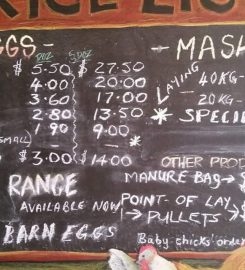 RICE LIS
GGS
DOZ 5 DOZ
$ 5.50 $ 27.50
4.00 20.00
3.60 17.00
2.80 13.50
SMALL) 1.90 9.00
$ 3.00 $ 14.00
RANGE
AVAILABLE NOW
BARN EGGS
- MASH
LAYING
40KG-
20KG-
* SPECI
*
OTHER PROD
MANURE BAG → $
POINT OF LAY
→ PULLETS → $
Baby chicks order